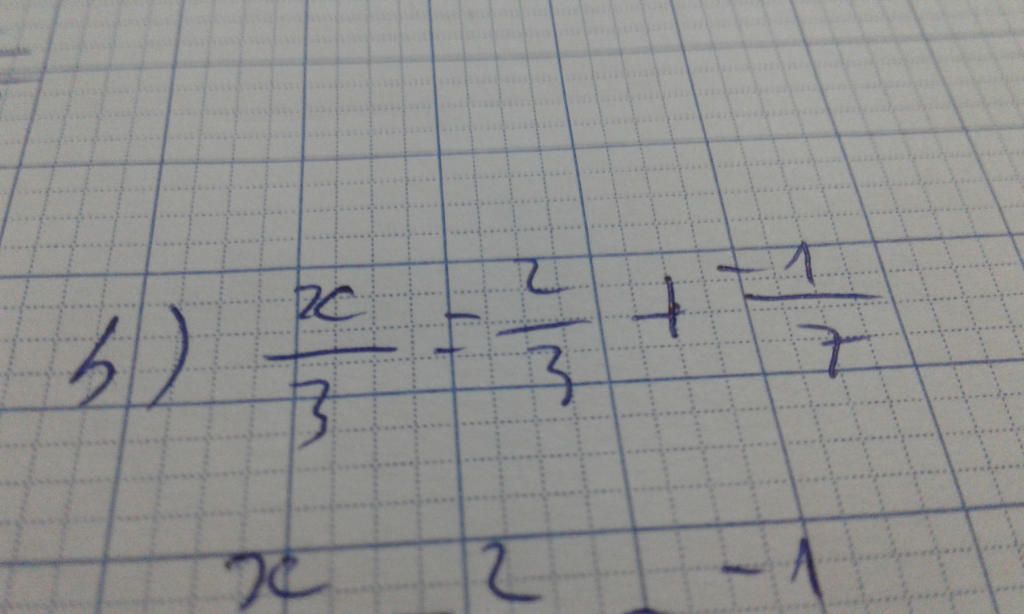 b) x/3 = 2/3 + -1/7
x 2 -1